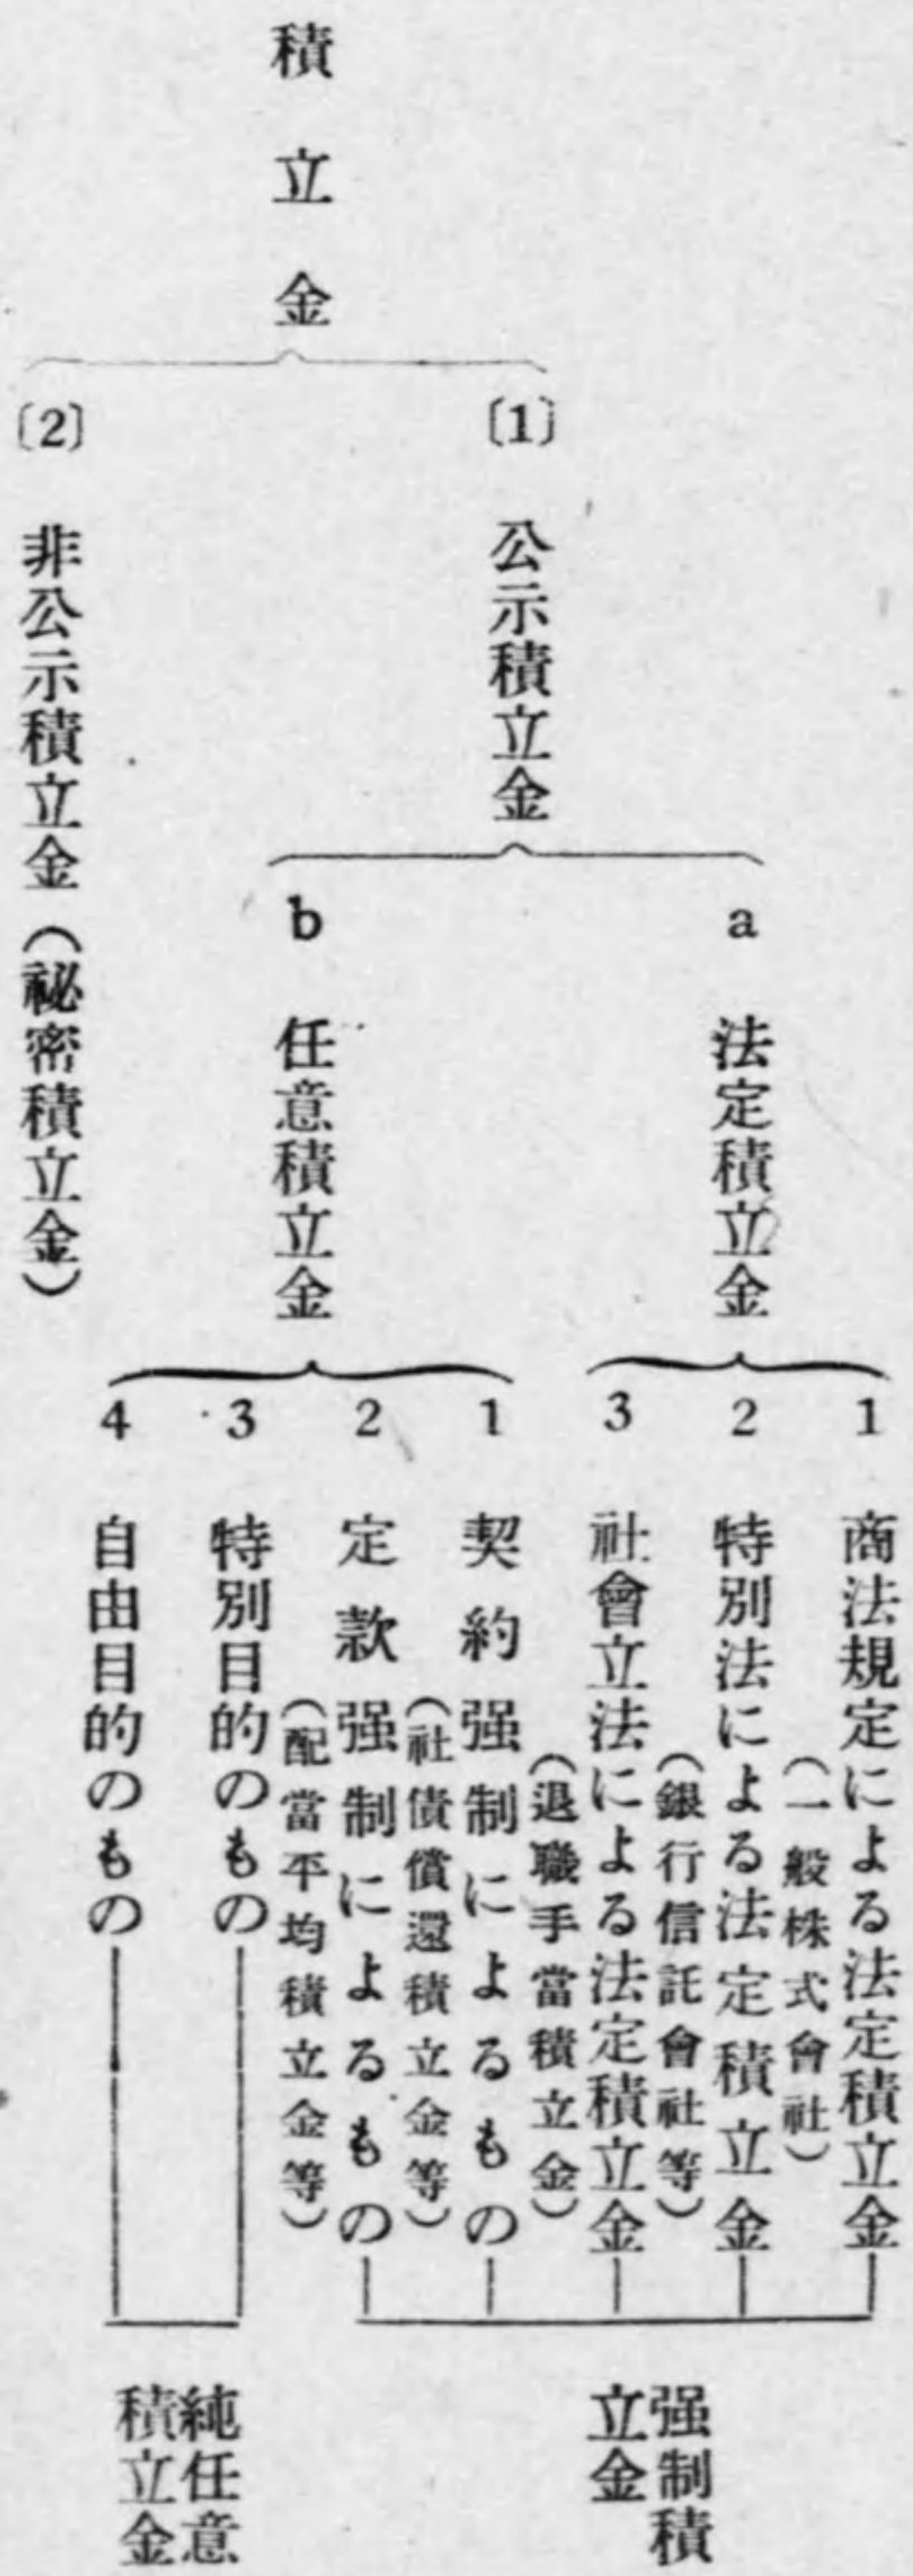 積立金
〔1〕 公示積立金
a 法定積立金
1 商法規定による法定積立金
（一般株式會社）
2 特別法による法定積立金
（銀行信託會社等）
3 社會立法による法定積立金
（退職手當積立金）
b 任意積立金
1 契約强制によるもの
（社債償還積立金等）
2 定款强制によるもの
（配當平均積立金等）
3 特別目的のもの
4 自由目的のもの
〔2〕 非公示積立金（祕密積立金）
强制積
立金
純任意
積立金